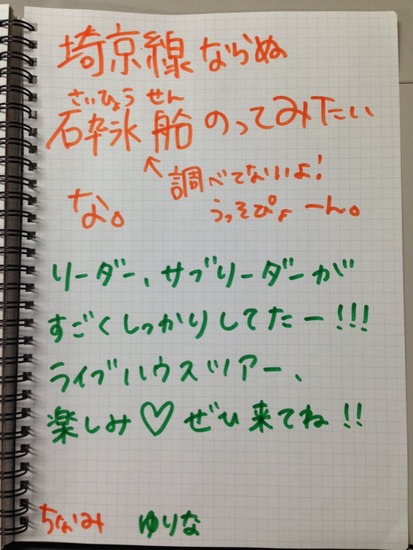 埼京線ならぬ
さいひょう せん
砕氷船のってみたい
↑調べてないよ!
な。 うっそぴょーん。
リーダー、サブリーダーが
すごくしっかりしてたー!!!
ライブハウスツアー、
楽しみ♡ぜひ来てね!!
ちなみ ゆりな